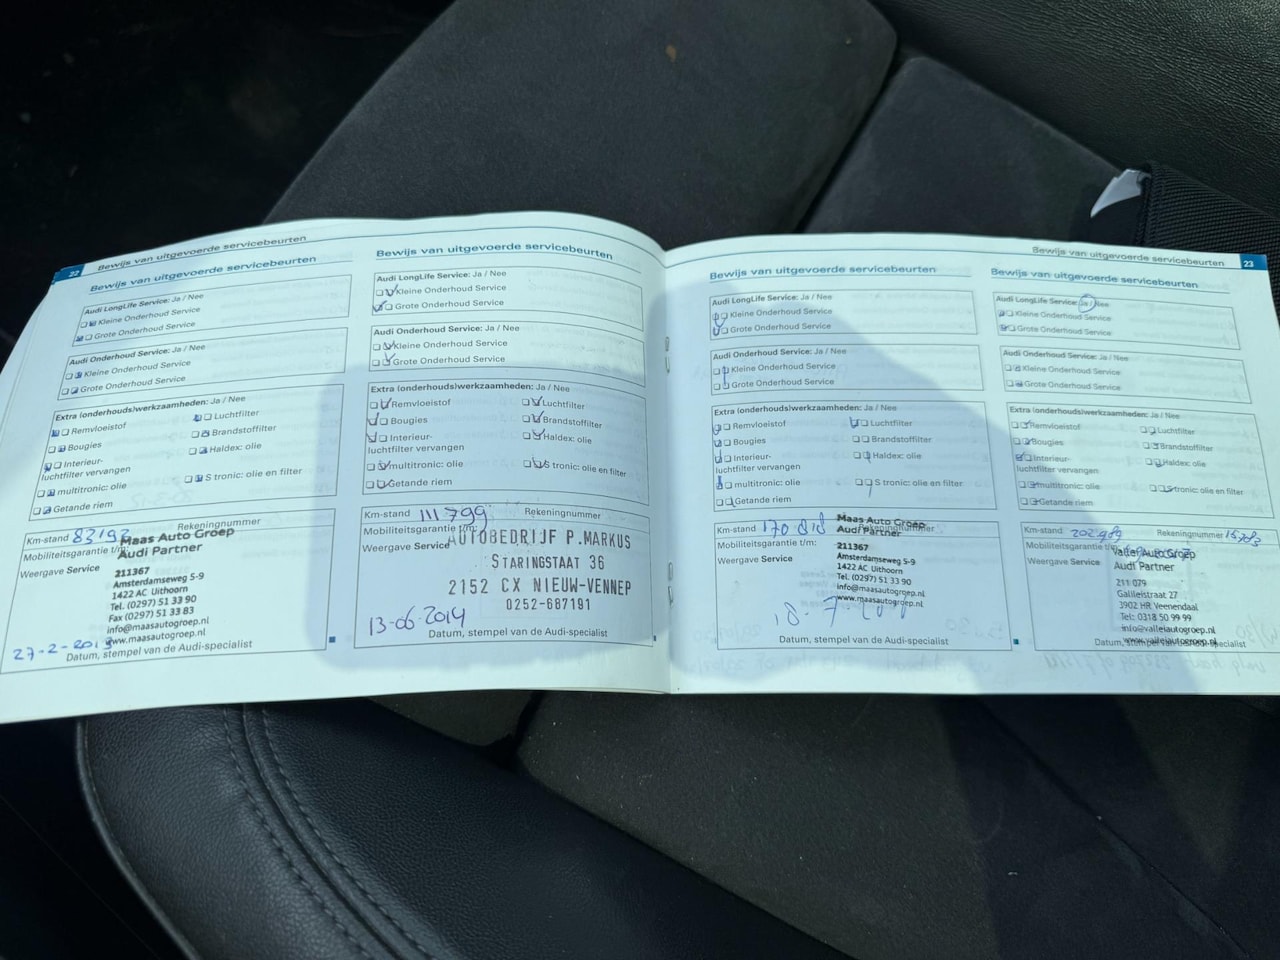 22
Bewijs van uitgevoerde servicebeurten
Bewijs van uitgevoerde servicebeurten
Audi LongLife Service: Ja / Nee
Kleine Onderhoud Service
Grote Onderhoud Service
Audi Onderhoud Service: Ja / Nee
Kleine Onderhoud Service
Grote Onderhoud Service
Extra (onderhouds)werkzaamheden: Ja / Nee
Remvloeistof Luchtfilter
Bougies Brandstoffilter
Interieur- Haldex: olie
luchtfilter vervangen
multitronic: olie S tronic: olie en filter
Getande riem
Km-stand Rekeningnummer
Mobiliteitsgarantie t/m:
Weergave Service
Maas Auto Groep
Audi Partner
211367
Amsterdamseweg 5-9
1422 AC Uithoorn
Tel. (0297) 51 33 90
Fax (0297) 51 33 83
info@maasautogroep.nl
www.maasautogroep.nl
27-2-2013
Datum, stempel van de Audi-specialist
Bewijs van uitgevoerde servicebeurten
Audi LongLife Service: Ja / Nee
Kleine Onderhoud Service
Grote Onderhoud Service
Audi Onderhoud Service: Ja / Nee
Kleine Onderhoud Service
Grote Onderhoud Service
Extra (onderhouds)werkzaamheden: Ja / Nee
Remvloeistof Luchtfilter
Bougies Brandstoffilter
Interieur- Haldex: olie
luchtfilter vervangen
multitronic: olie S tronic: olie en filter
Getande riem
Km-stand 111799 Rekeningnummer
Mobiliteitsgarantie t/m:
Weergave Service
AUTOBEDRIJF P.MARKUS
STARINGSTAAT 36
2152 CX NIEUW-VENNEP
0252-687191
13-06-2014
Datum, stempel van de Audi-specialist
Bewijs van uitgevoerde servicebeurten
23
Bewijs van uitgevoerde servicebeurten
Audi LongLife Service: Ja / Nee
Kleine Onderhoud Service
Grote Onderhoud Service
Audi Onderhoud Service: Ja / Nee
Kleine Onderhoud Service
Grote Onderhoud Service
Extra (onderhouds)werkzaamheden: Ja / Nee
Remvloeistof Luchtfilter
Bougies Brandstoffilter
Interieur- Haldex: olie
luchtfilter vervangen
multitronic: olie S tronic: olie en filter
Getande riem
Km-stand 170818 Rekeningnummer
Mobiliteitsgarantie t/m:
Weergave Service
Maas Auto Groep
Audi Partner
211367
Amsterdamseweg 5-9
1422 AC Uithoorn
Tel. (0297) 51 33 90
info@maasautogroep.nl
www.maasautogroep.nl
Datum, stempel van de Audi-specialist
Bewijs van uitgevoerde servicebeurten
Audi LongLife Service: Ja / Nee
Kleine Onderhoud Service
Grote Onderhoud Service
Audi Onderhoud Service: Ja / Nee
Kleine Onderhoud Service
Grote Onderhoud Service
Extra (onderhouds)werkzaamheden: Ja / Nee
Remvloeistof Luchtfilter
Bougies Brandstoffilter
Interieur- Haldex: olie
luchtfilter vervangen
multitronic: olie S tronic: olie en filter
Getande riem
Km-stand 202989 Rekeningnummer
Mobiliteitsgarantie t/m:
Weergave Service
Vallei Auto Groep
Audi Partner
211 079
Galileistraat 27
3902 HR Veenendaal
Tel: 0318 50 99 99
info@valleiautogroep.nl
www.valleiautogroep.nl
Datum, stempel van de Audi-specialist